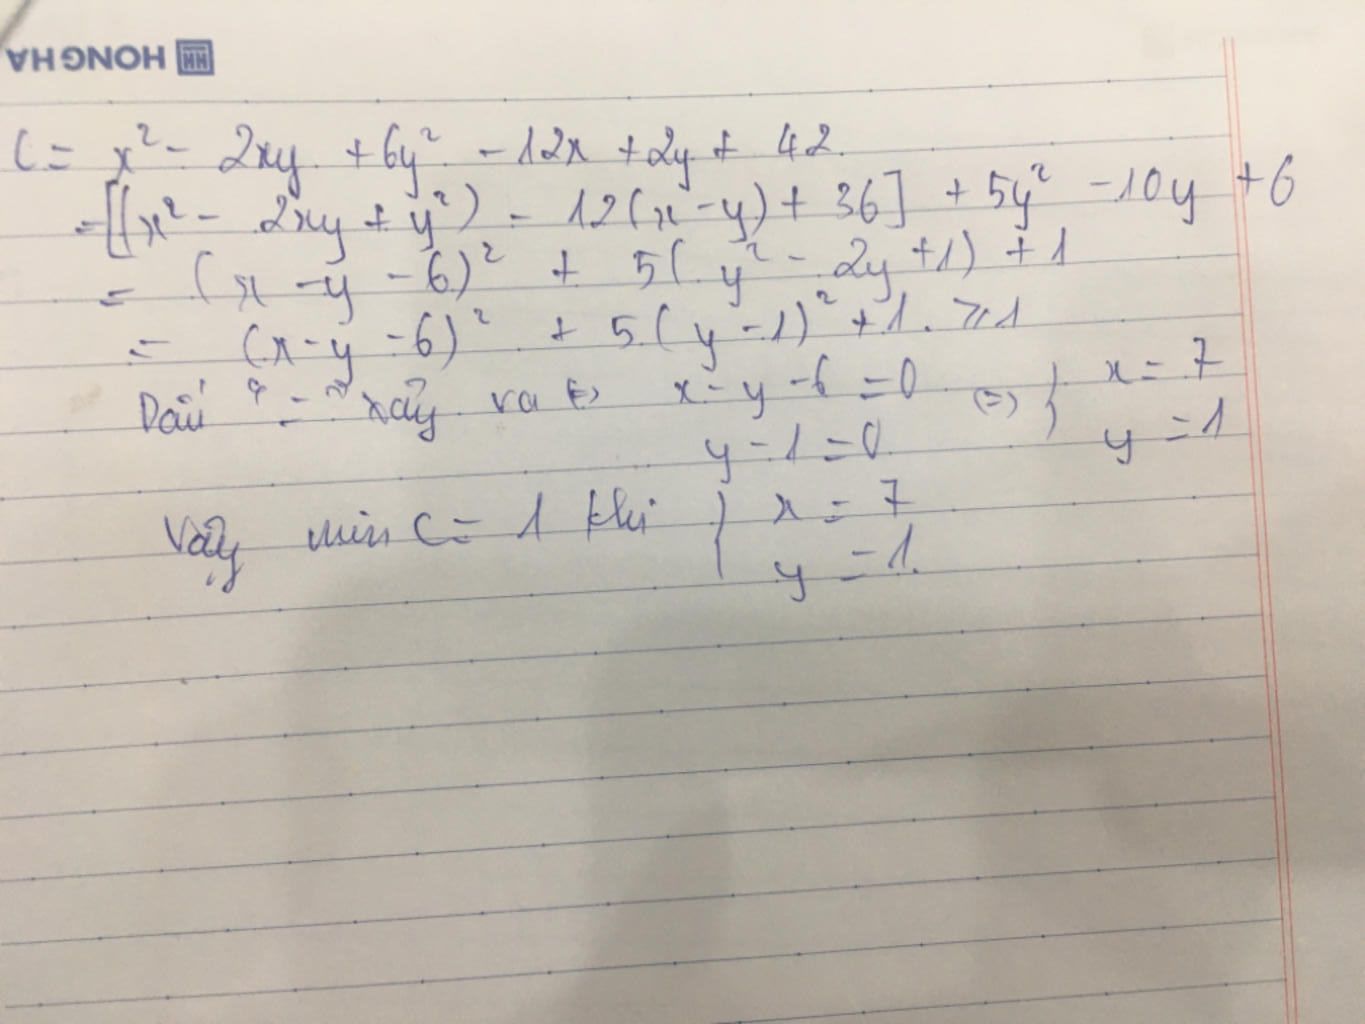 HONG HA
C = x² - 2xy + 6y² - 12x + 2y + 42
= [(x² - 2xy + y²) - 12(x - y) + 36] + 5y² - 10y + 6
= (x - y - 6)² + 5(y² - 2y + 1) + 1
= (x - y - 6)² + 5(y - 1)² + 1. ⩾ 1
Dấu "=" xảy ra <=> x - y - 6 = 0 (=) } x = 7
y - 1 = 0 y = 1
Vậy min C = 1 khi } x = 7
y = 1.